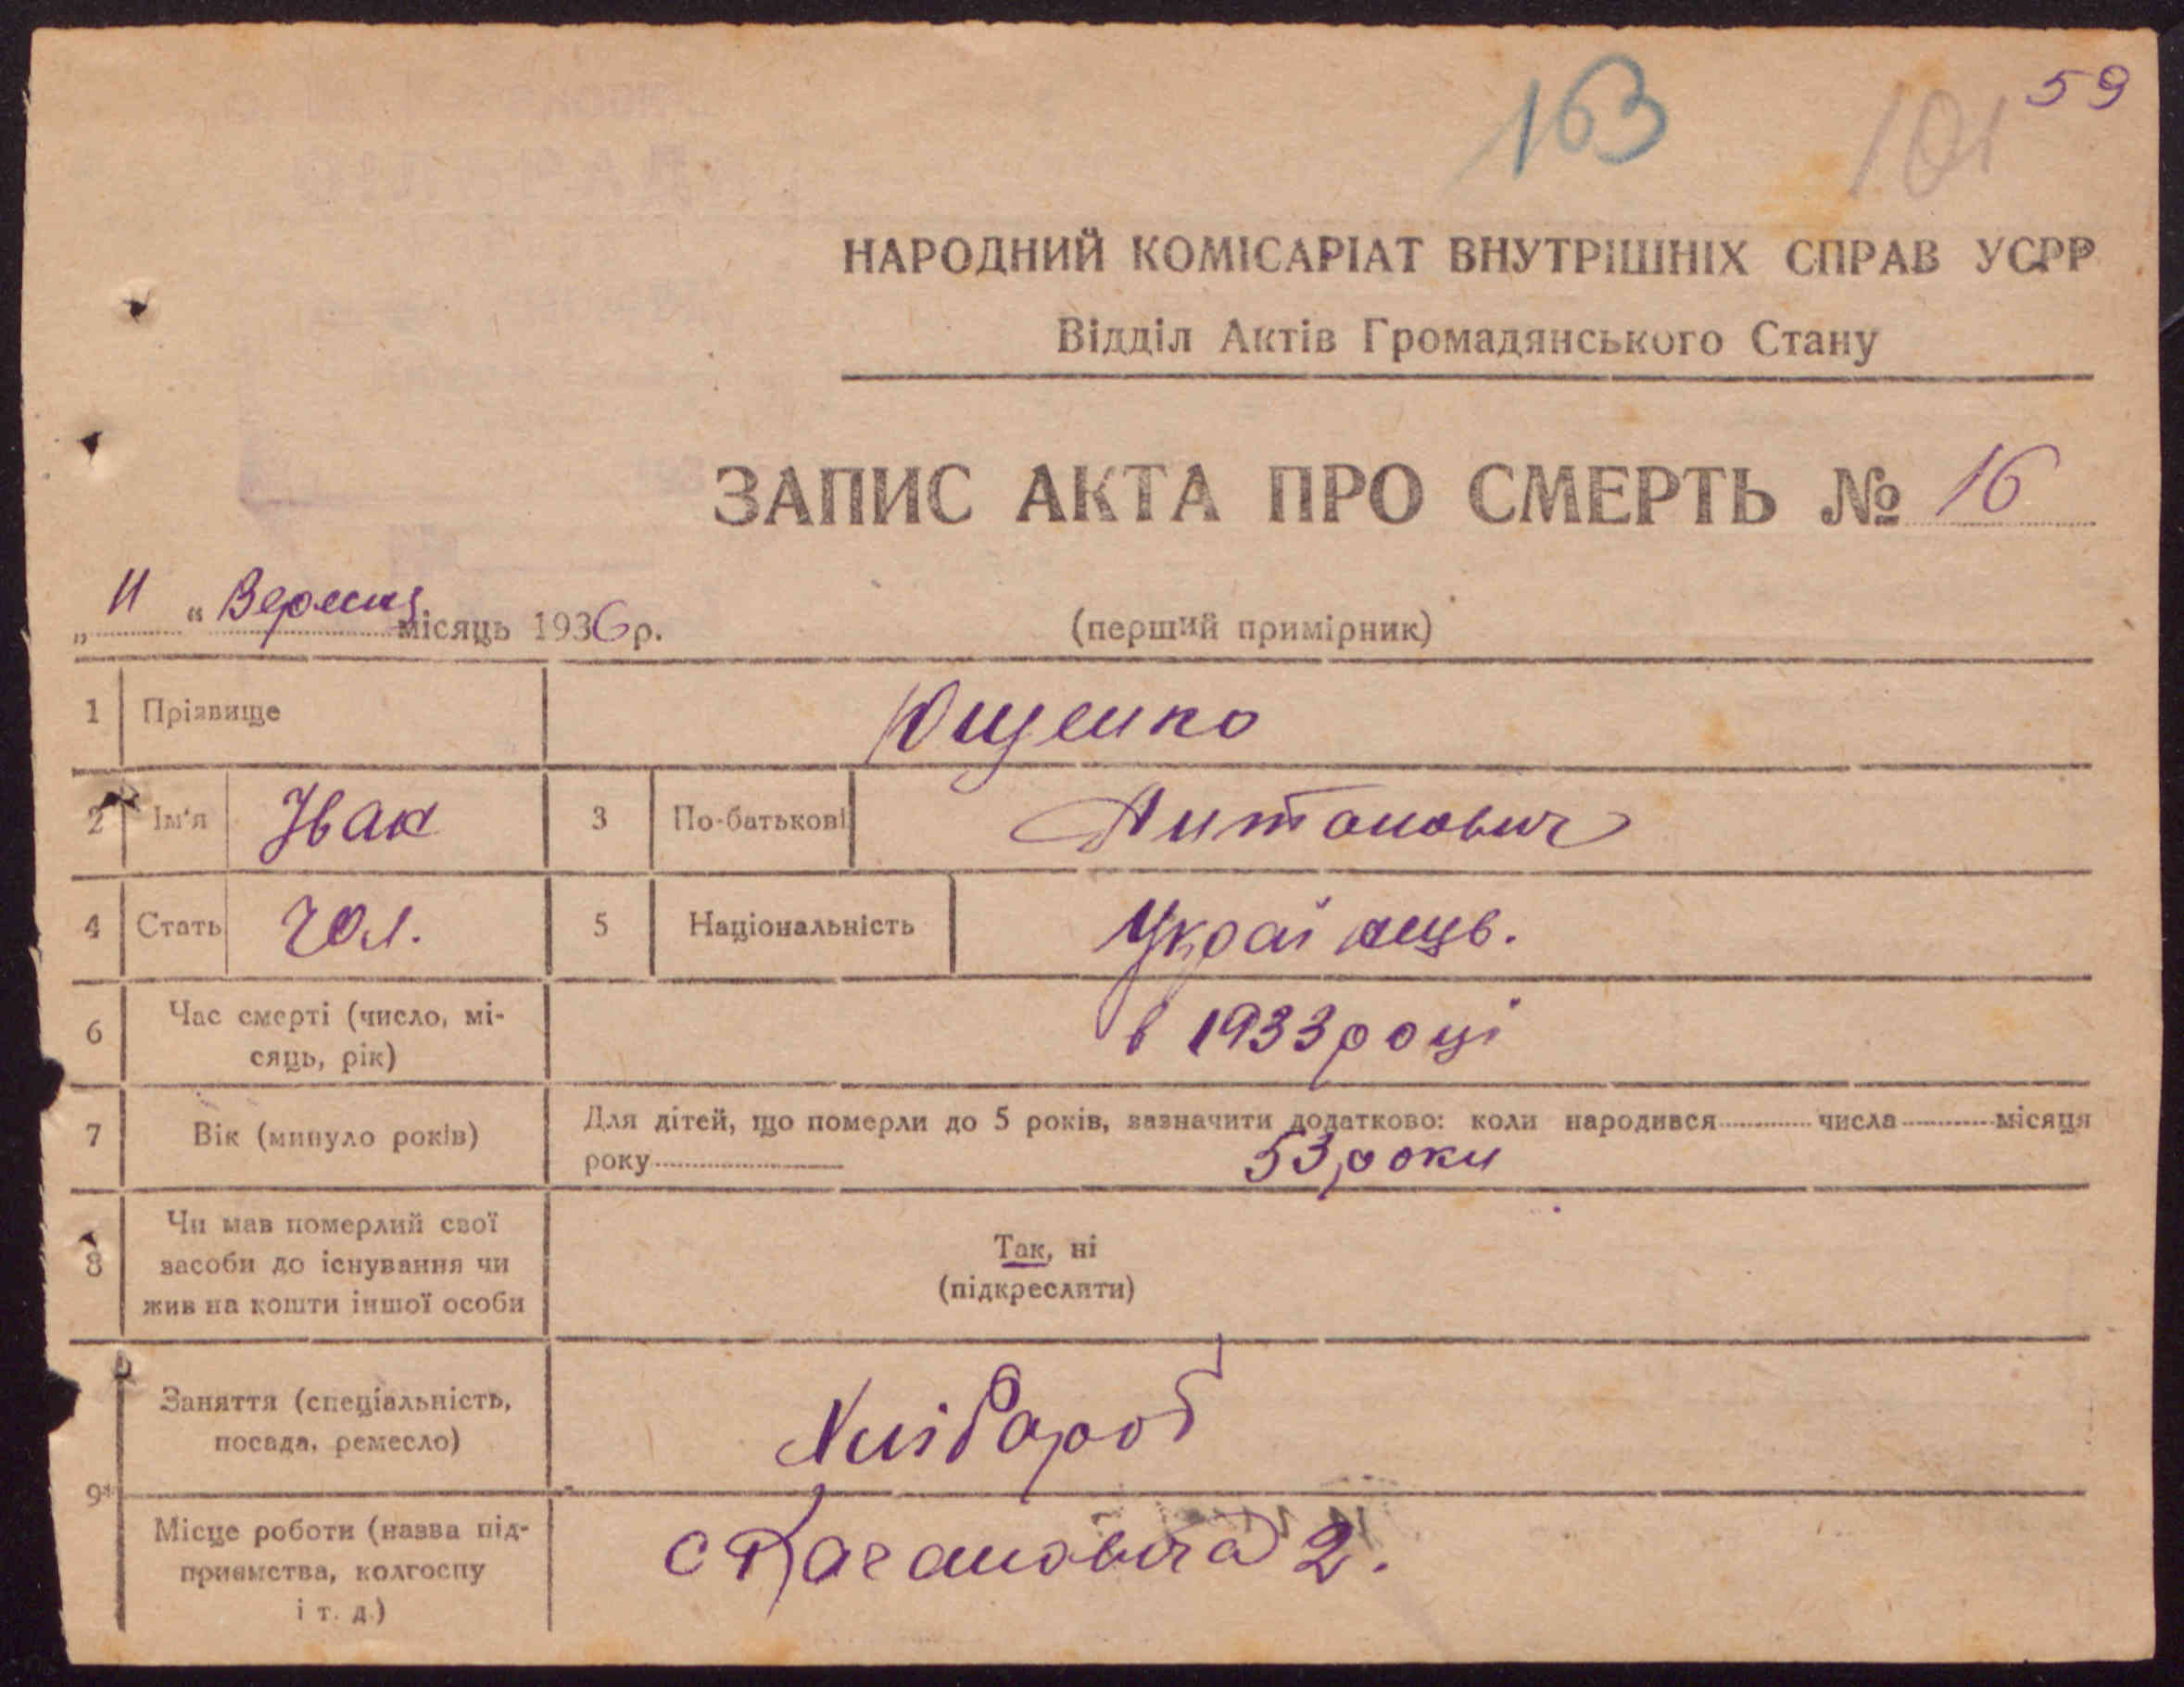 163 101 59
НАРОДНИЙ КОМІСАРІАТ ВНУТРІШНІХ СПРАВ УСРР
Відділ Актів Громадянського Стану
ЗАПИС АКТА ПРО СМЕРТЬ № 16
„ 11 “ Вересня місяць 1936 р. (перший примірник)
1 Прізвище Ющенко
2 Ім'я Іван 3 По-батькові Антонович
4 Стать Чол. 5 Національність Українець.
6 Час смерті (число, мі-
сяць, рік) в 1933 році
7 Вік (минуло років) Для дітей, що померли до 5 років, зазначити додатково: коли народився числа місяця
року 53 роки
8 Чи мав померлий свої
засоби до існування чи
жив на кошти іншої особи
Так, ні
(підкреслити)
9 Заняття (спеціальність,
посада, ремесло) Хлібороб
Місце роботи (назва під-
приємства, колгоспу
і т. д.) с Кагановича 2.